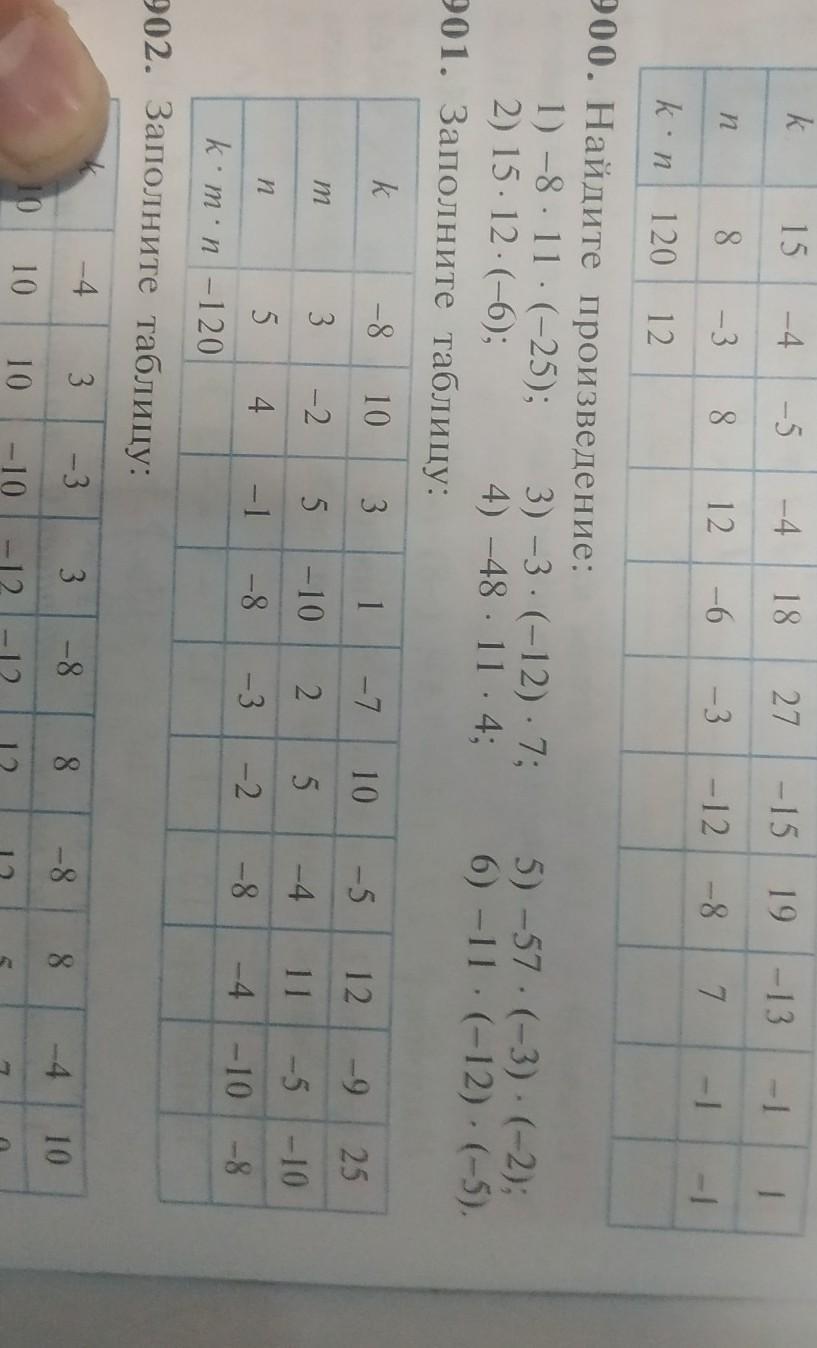 k 15 -4 -5 -4 18 27 -15 19 -13 -1 1
n 8 -3 8 12 -6 -3 -12 -8 7 -1 -1
k · n 120 12
900. Найдите произведение:
1) -8 · 11 · (-25); 3) -3 · (-12) · 7; 5) -57 · (-3) · (-2);
2) 15 · 12 · (-6); 4) -48 · 11 · 4; 6) -11 · (-12) · (-5).
901. Заполните таблицу:
k -8 10 3 1 -7 10 -5 12 -9 25
m 3 -2 5 -10 2 5 -4 11 -5 -10
n 5 4 -1 -8 -3 -2 -8 -4 -10 -8
k · m · n -120
902. Заполните таблицу:
k -4 3 -3 3 -8 8 -8 8 -4 10
10 10 10 -10 -12 -12 12 12